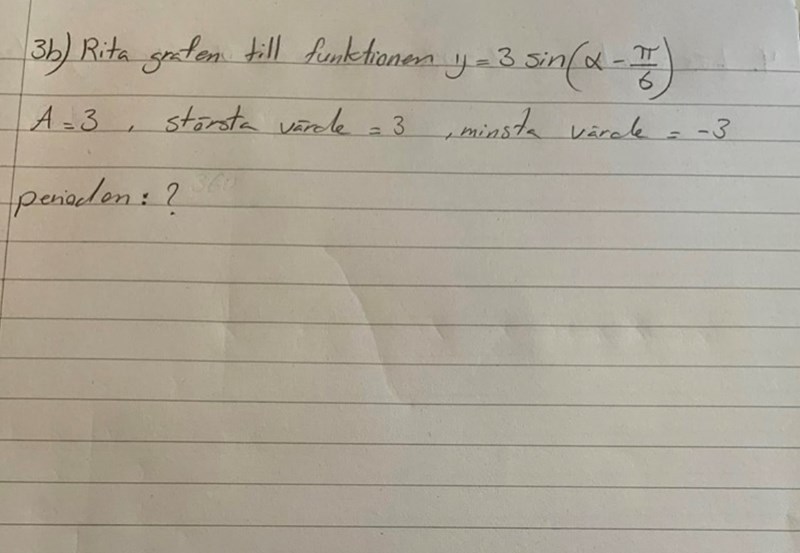 3b) Rita grafen till funktionen y = 3 sin(α - π/6)
A = 3 , största värde = 3 , minsta värde = -3
perioden : ?